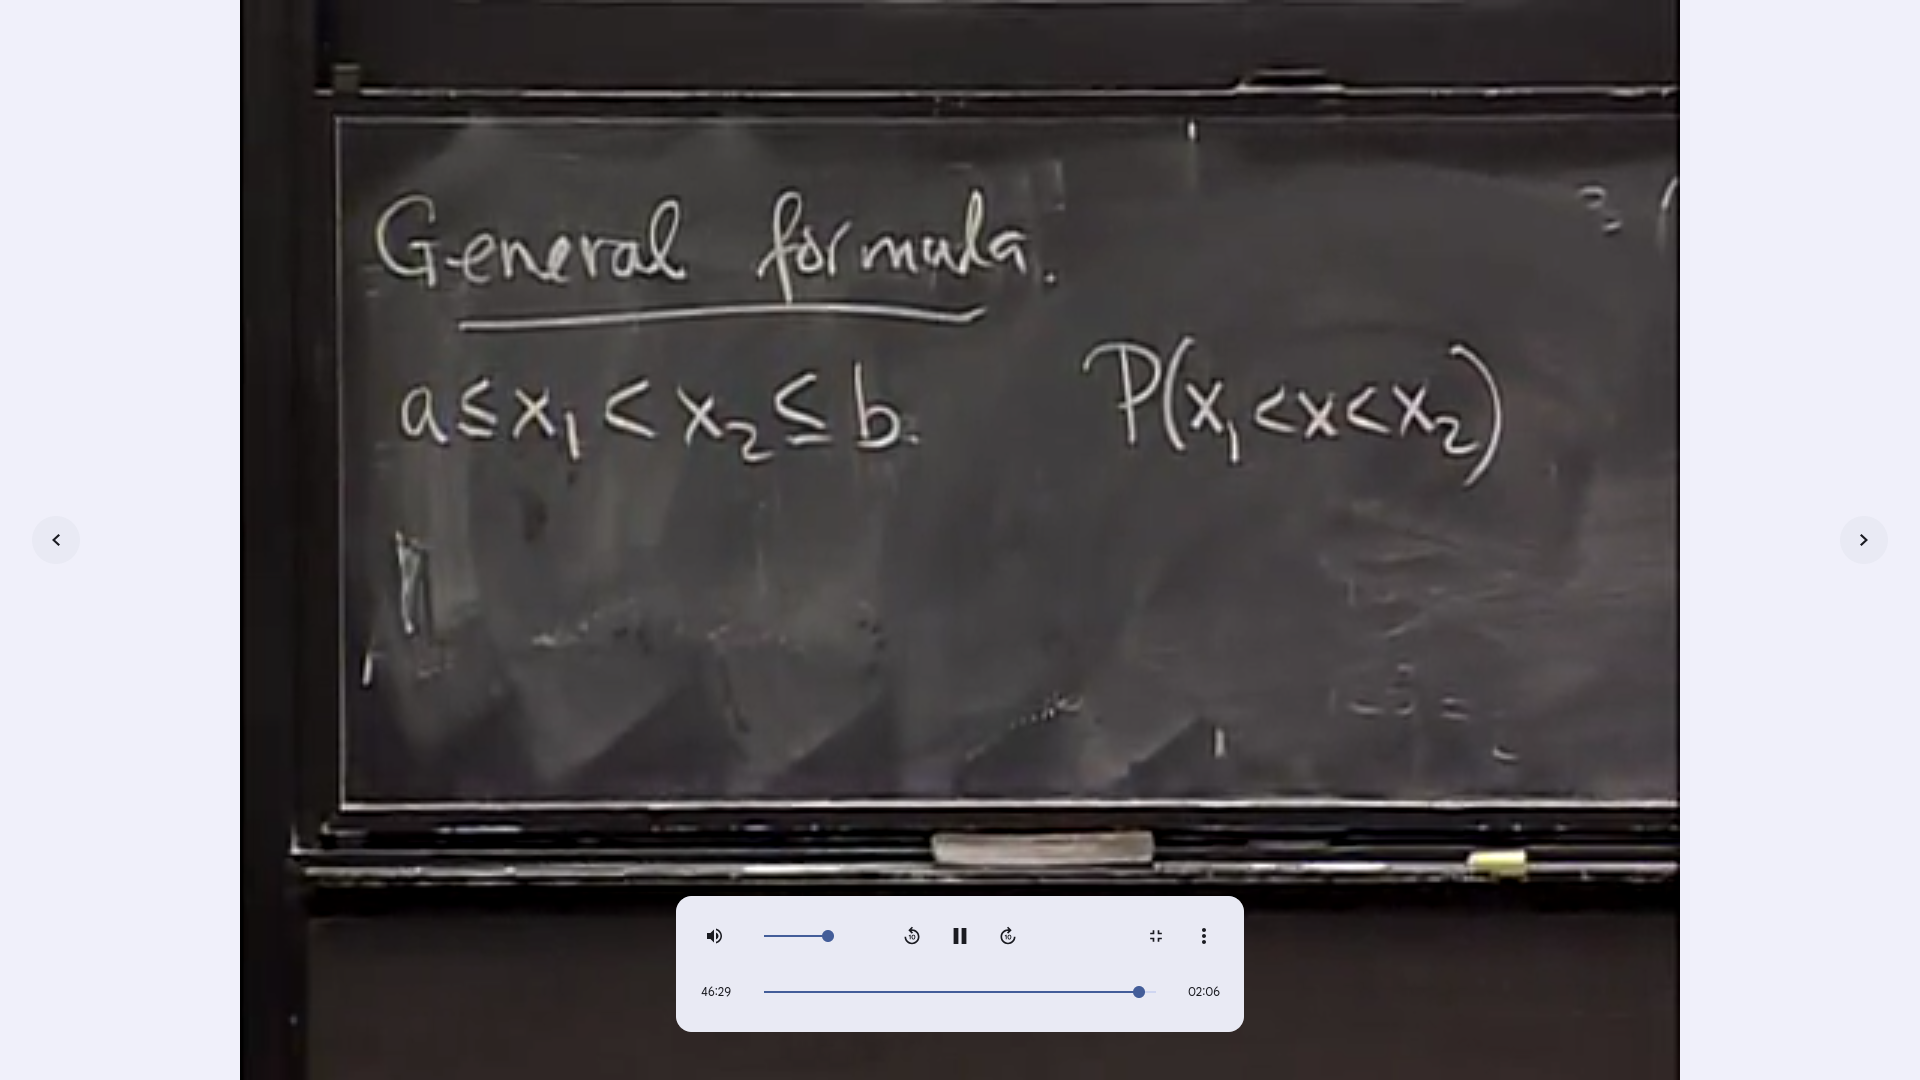 General formula.
a ≤ x₁ < x₂ ≤ b.
P(x₁ < x < x₂)
46:29
02:06